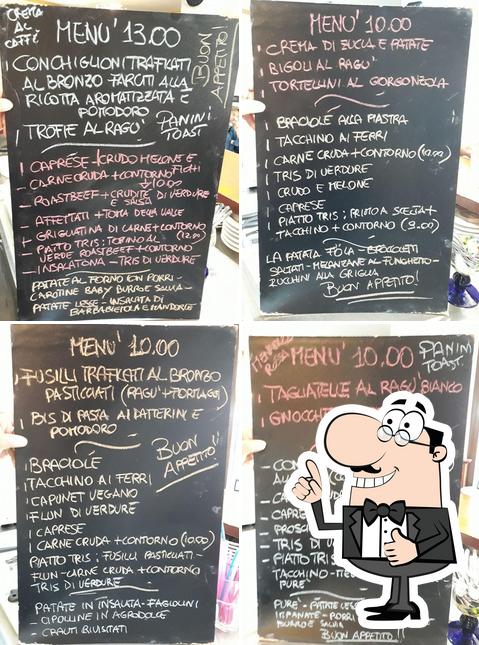 CREMA
AL
CAFFÈ
MENU' 13.00
BUON
APPETITO!
CONCHIGLIONI TRAFILATI
AL BRONZO FARCITI ALLA
RICOTTA AROMATIZZATA E
POMODORO
TROFIE AL RAGU'
PANINI
TOAST
CAPRESE - CRUDO MELONE E
FICHI
CARNE CRUDA + CONTORNO
10.00
ROASTBEEF + CRUDITÉ DI VERDURE
E SALSA
AFFETTATI + TOMA DELLA VALLE
GRIGLIATINA DI CARNE + CONTORNO
PIATTO TRIS: TONNO AL (12.00)
VERDE ROASTBEEF + CONTORNO
INSALATONA - TRIS DI VERDURE
PATATE AL FORNO CON PORRI -
CAROTINE BABY BURRO E SALVIA -
PATATE LESSE - INSALATA DI
BARBABIETOLA E MANDORLE
MENU' 10.00
CREMA DI ZUCCA E PATATE
BIGOLI AL RAGU'
TORTELLINI AL GORGONZOLA
BRACIOLE ALLA PIASTRA
TACCHINO AI FERRI
CARNE CRUDA + CONTORNO (10.00)
TRIS DI VERDURE
CRUDO E MELONE
CAPRESE
PIATTO TRIS: PRIMO A SCELTA +
TACCHINO + CONTORNO (9.00)
LA PATATA FÖLA - BROCCOLETTI
SALTATI - MELANZANE AL FUNGHETTO -
ZUCCHINI ALLA GRIGLIA
BUON APPETITO!
MENU' 10.00
FUSILLI TRAFILATI AL BRONZO
PASTICCIATI (RAGU' + FORMAGGI)
BIS DI PASTA AI DATTERINI E
POMODORO
BUON
APPETITO!
BRACIOLE
TACCHINO AI FERRI
CAPUNET VEGANO
FLAN DI VERDURE
CAPRESE
CARNE CRUDA + CONTORNO (10.00)
PIATTO TRIS: FUSILLI PASTICCIATI -
FLAN - CARNE CRUDA + CONTORNO
TRIS DI VERDURE
PATATE IN INSALATA - FAGIOLINI
- CIPOLLINE IN AGRODOLCE
- CRAUTI BIVISITATI
MENU' 10.00
PANINI
TOAST
TAGLIATELLE AL RAGU' BIANCO
GNOCCHI
TRIS DI
PIATTO TRIS
TACCHINO -
PURE'
PURE' - PATATE LESSE
IMPANATE - PORRI
BURRO E SALVIA
BUON APPETITO!!